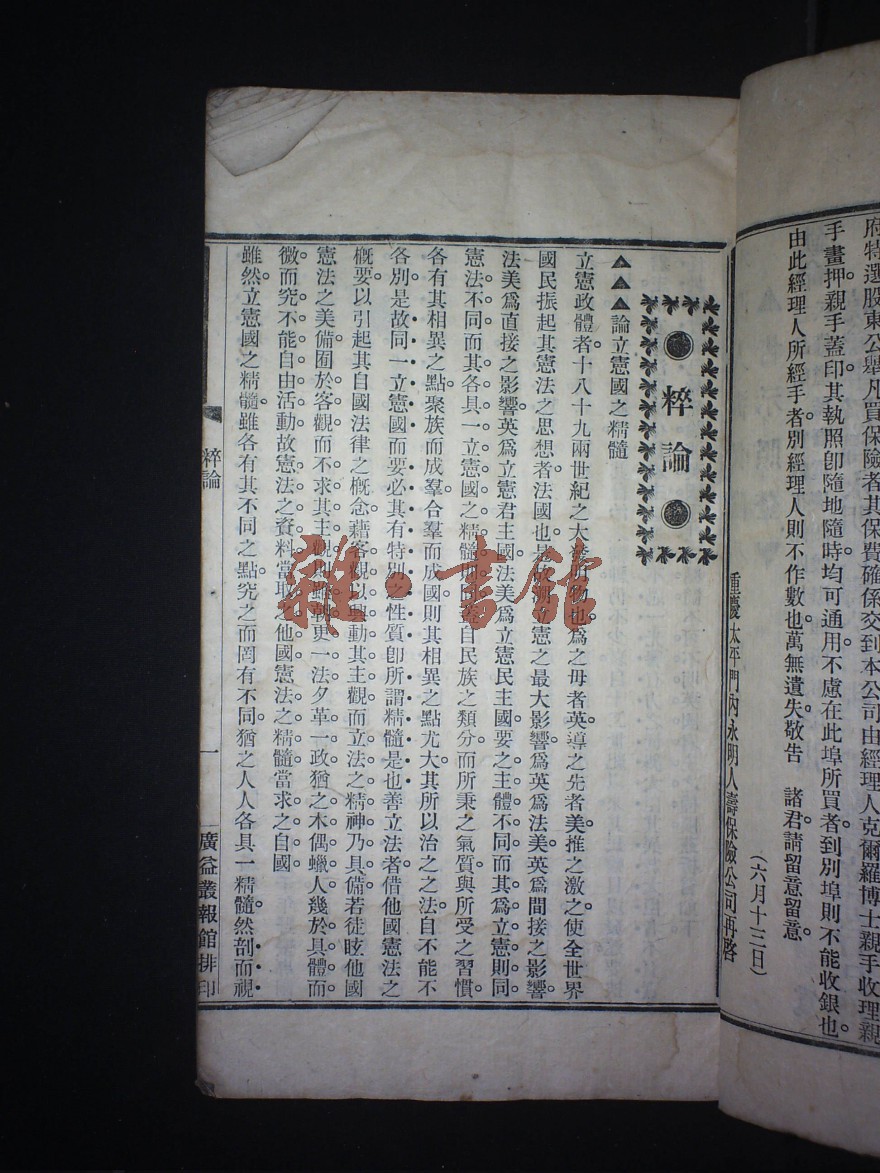 府特選股東公舉凡買保險者其保費確係交到本公司由經理人克爾羅博士親手收理親
手畫押親手蓋印其執照卽隨地隨時均可通用不慮在此埠所買者到別埠則不能收銀也。
由此經理人所經手者別經理人則不作數也萬無遺失敬告　諸君請留意留意
（六月十三日）
重慶太平門內永明人壽保險公司再啓
●粹論●
▲▲▲論立憲國之精髓
立憲政體者十八十九兩世紀之大物也爲之毋者英導之先者美推之激之使全世界
國民振起其憲法之思想者法國也是故溯立憲之最大影響爲英爲法美英爲間接之影響
法美爲直接之影響英爲立憲君主國法美爲立憲民主國要之主體不同而其爲立憲則同
憲法不同而其各具一立憲國之精髓則同蓋自民族之類分而所秉之氣質與所受之習慣
各有其相異之點聚族而成羣合羣而成國則其相異之點尤大其所以治之之法自不能不
各別是故同一立憲國而要必其有特別之性質卽所謂精髓是也善立法者借他國憲法之
概要以引起其自國法律之概念藉客觀以興動其主觀而立法之精神乃具備若徒眩他國
憲法之美備囿於客觀而不求其主觀則雖朝更一法夕革一政猶之木偶蠟人幾於具體而
微而究不能自由活動故憲法之資料當取之他國憲法之精髓當求之自國
雖然立憲國之精髓雖各有其不同之點究之而罔有不同猶之人人各具一精髓然剖而視
粹論
一
廣益叢報館排印
雜·書館